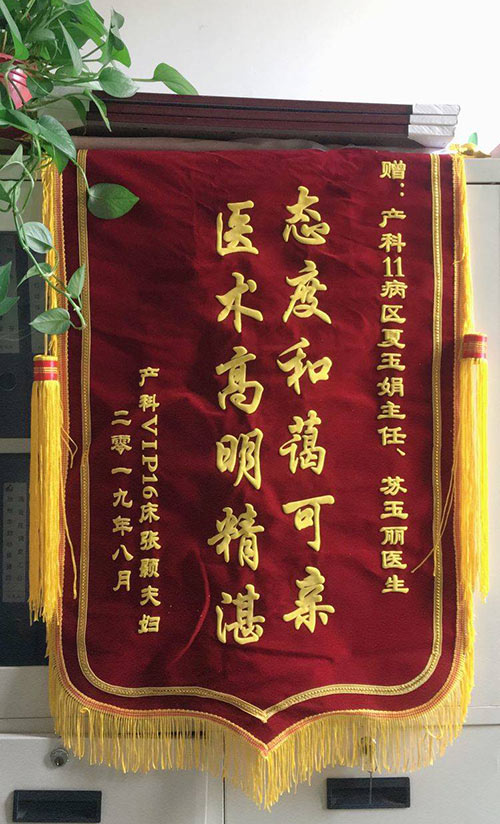 赠：产科11病区夏玉娟主任、苏玉丽医生
态度和蔼可亲
医术高明精湛
产科VIP16床张颖夫妇
二零一九年八月